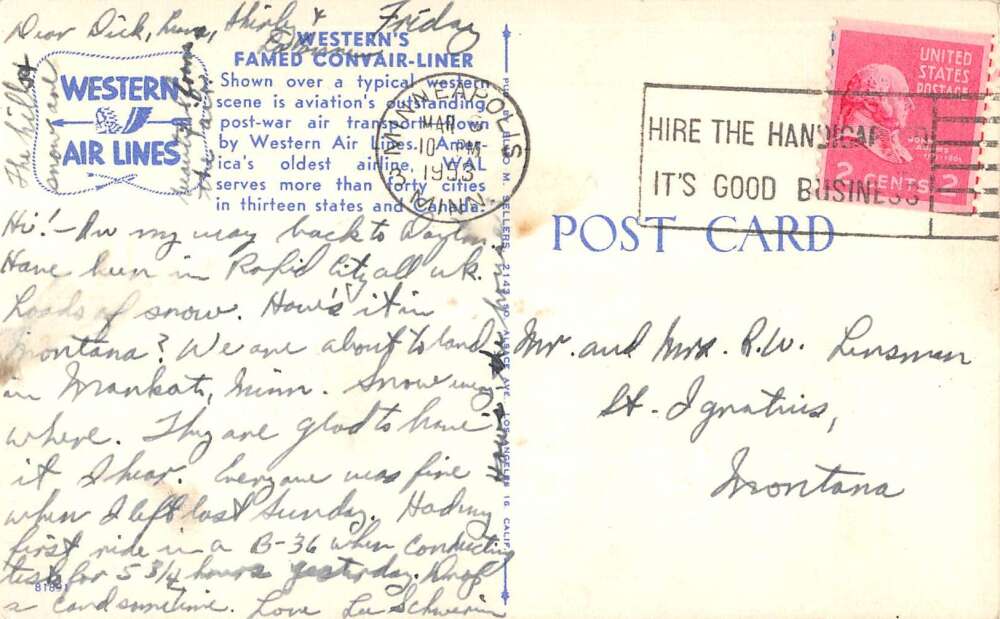 Friday
Dear Dick, Shirley &
WESTERN'S
FAMED CONVAIR-LINER
Shown over a typical western
scene is aviation's outstanding
post-war air transport flown
by Western Air Lines. Amer-
ica's oldest airline, WAL
serves more than forty cities
in thirteen states and Canada.
WESTERN
AIR LINES
The hills
snow are
from
the air.
Hi! - On my way back to Dayton.
Have been in Rapid City all wk.
Loads of snow. How's it in
Montana? We are about to land
in Mankato, Minn. Snow every
where. They are glad to have
it I hear. Everyone was fine
when I left last Sunday. Had my
first ride in a B-36 when conducting
tests for 5 3/4 hours yesterday. Drop
a card sometime. Love Lee Schwerin
How's the house
81891
PUB. BY M. SELLERS, 2143 SO. ALSACE AVE. LOS ANGELES 16, CALIF.
MINNEAPOLIS
MAR
10 PM
1953
MINN.
HIRE THE HANDICAPPED
IT'S GOOD BUSINESS
UNITED
STATES
POSTAGE
JOHN
ADAMS
2 CENTS 2
POST CARD
Mr. and Mrs. R.W. Linsman
St. Ignatius,
Montana